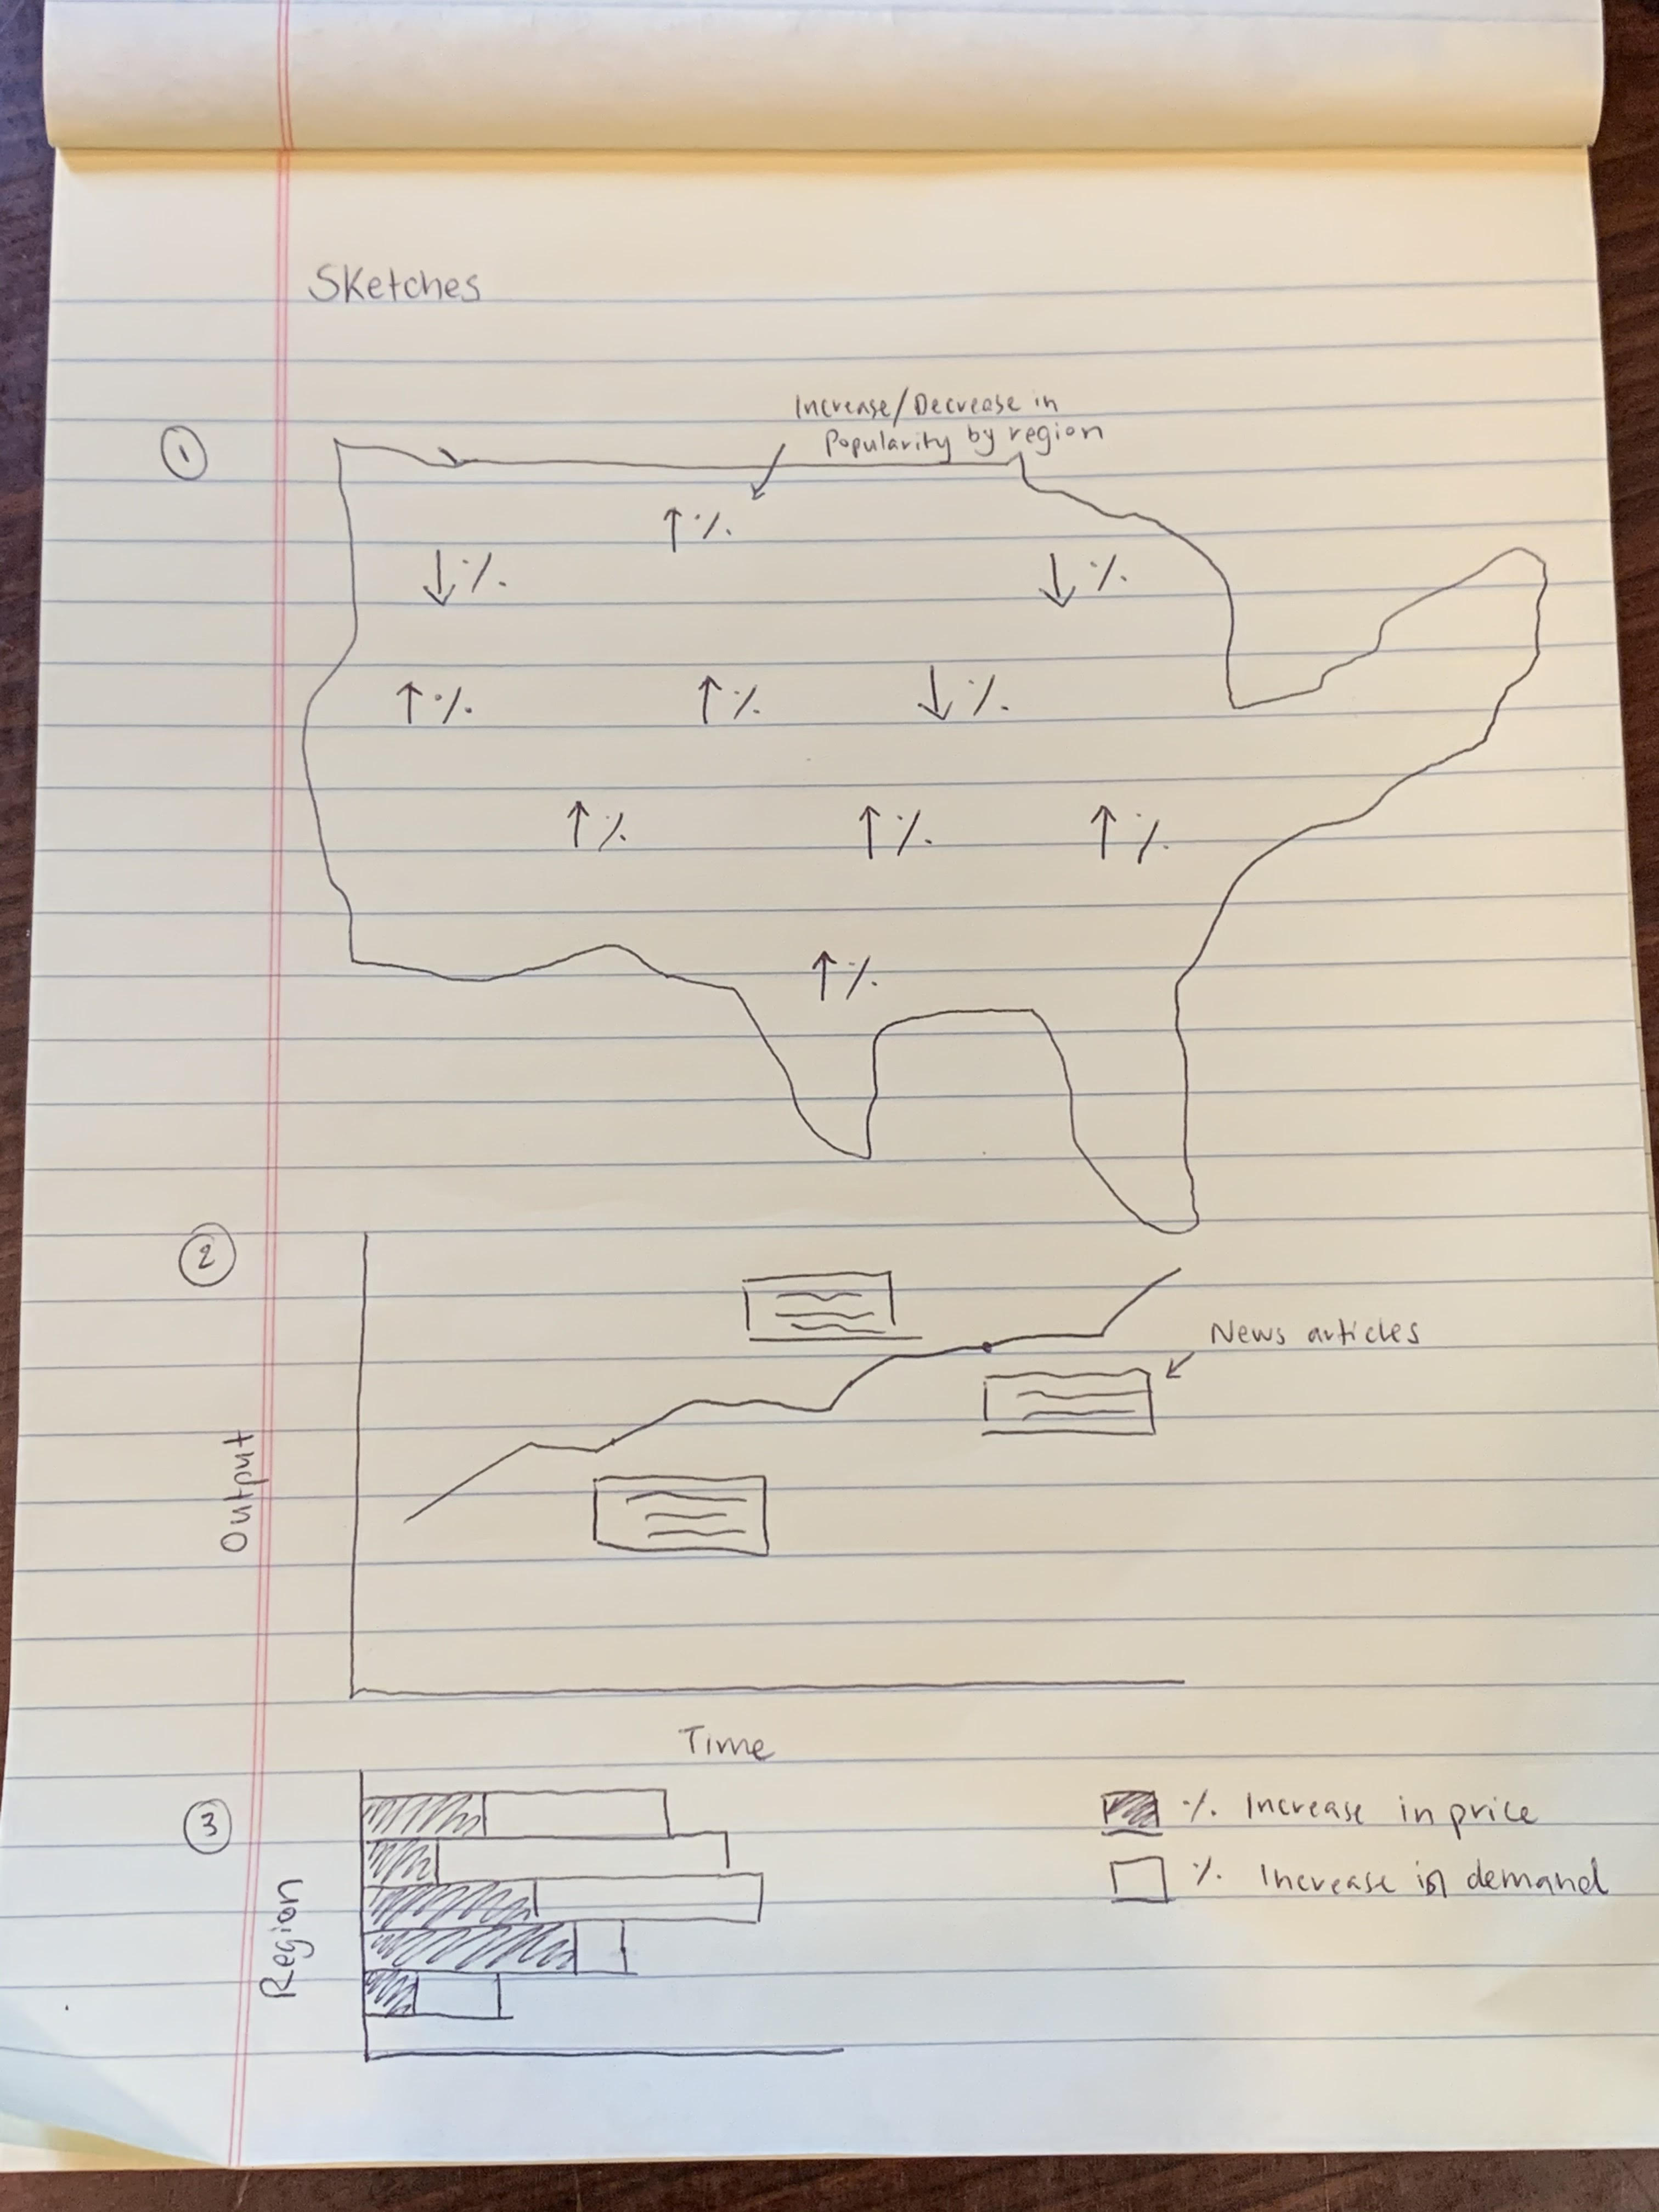 Sketches
1
Increase/Decrease in
Popularity by region
↑ %
↓ %
↓ %
↑ %
↑ %
↓ %
↑ %
↑ %
↑ %
↑ %
2
News articles
Output
Time
3
% Increase in price
% Increase in demand
Region